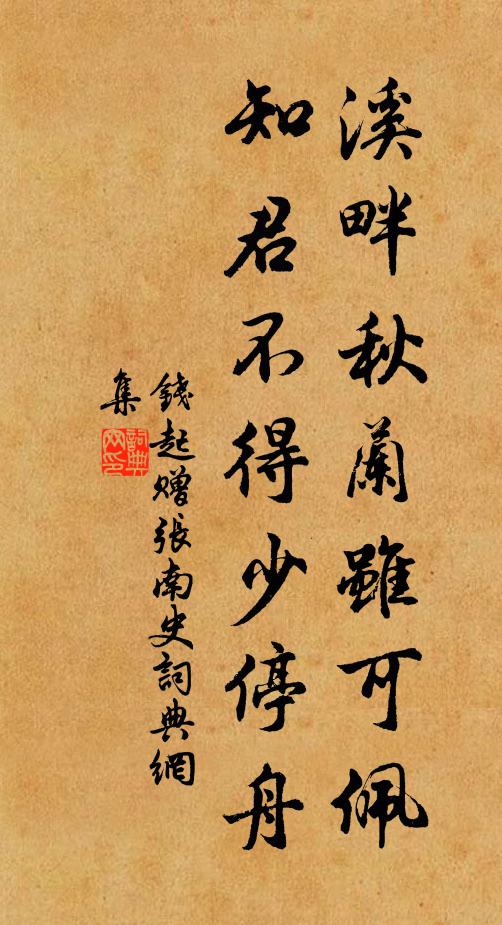 溪畔秋蘭雖可佩
知君不得少停舟
錢起贈張南史詞典網
集
詞典
网印